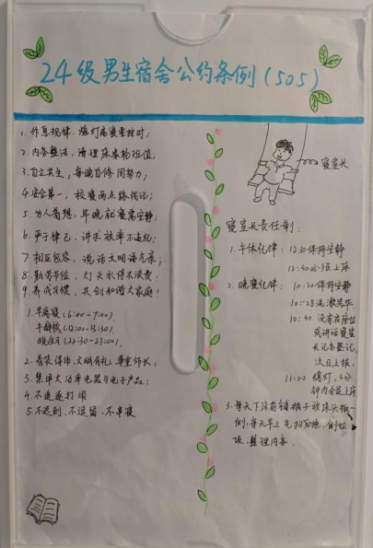 24级男生宿舍公约条例(505)
1.作息规律,熄灯就寝要按时;
2.内务整洁,清理床务物位值;
3.自立共生,每晚自修同努力;
4.安全第一,校寝两点路线记;
5.为人着想,早晚就寝需安静;
6.严于律己,讲求效率不违纪;
7.相互包容,说话文明语气柔;
8.勤劳节俭,灯关水停不浪费;
9.养成习惯,共创和谐大家庭!
1.早离寝(6:00-7:00)
午静校(12:00-13:30)
晚就寝(22:30-23:00)
2.着装得体,文明有礼,尊重师长;
3.禁带大功率电器与电子产品;
4.不追逐打闹
5.不迟到、不逗留、不串寝
寝室长
寝室长责任制:
1.午休纪律:12:30保持安静
12:40必须上床
2.晚寝纪律:10:30保持安静
10:40没有在床位
或讲话寝室
长记名登记,
次日上报.
11:00熄灯,5分
钟内必须上床
3.每天下床前铺被子放床头板一
侧,每天早上 扫厕地,倒垃
圾,整理内务.